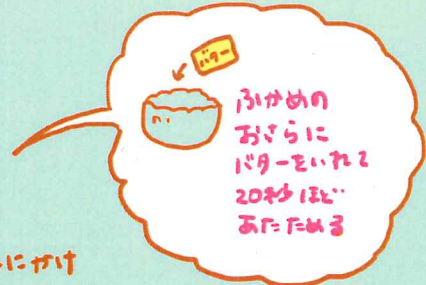 バター
ふかめの
おさらに
バターをいれて
20秒ほど
あたためる
にかけ